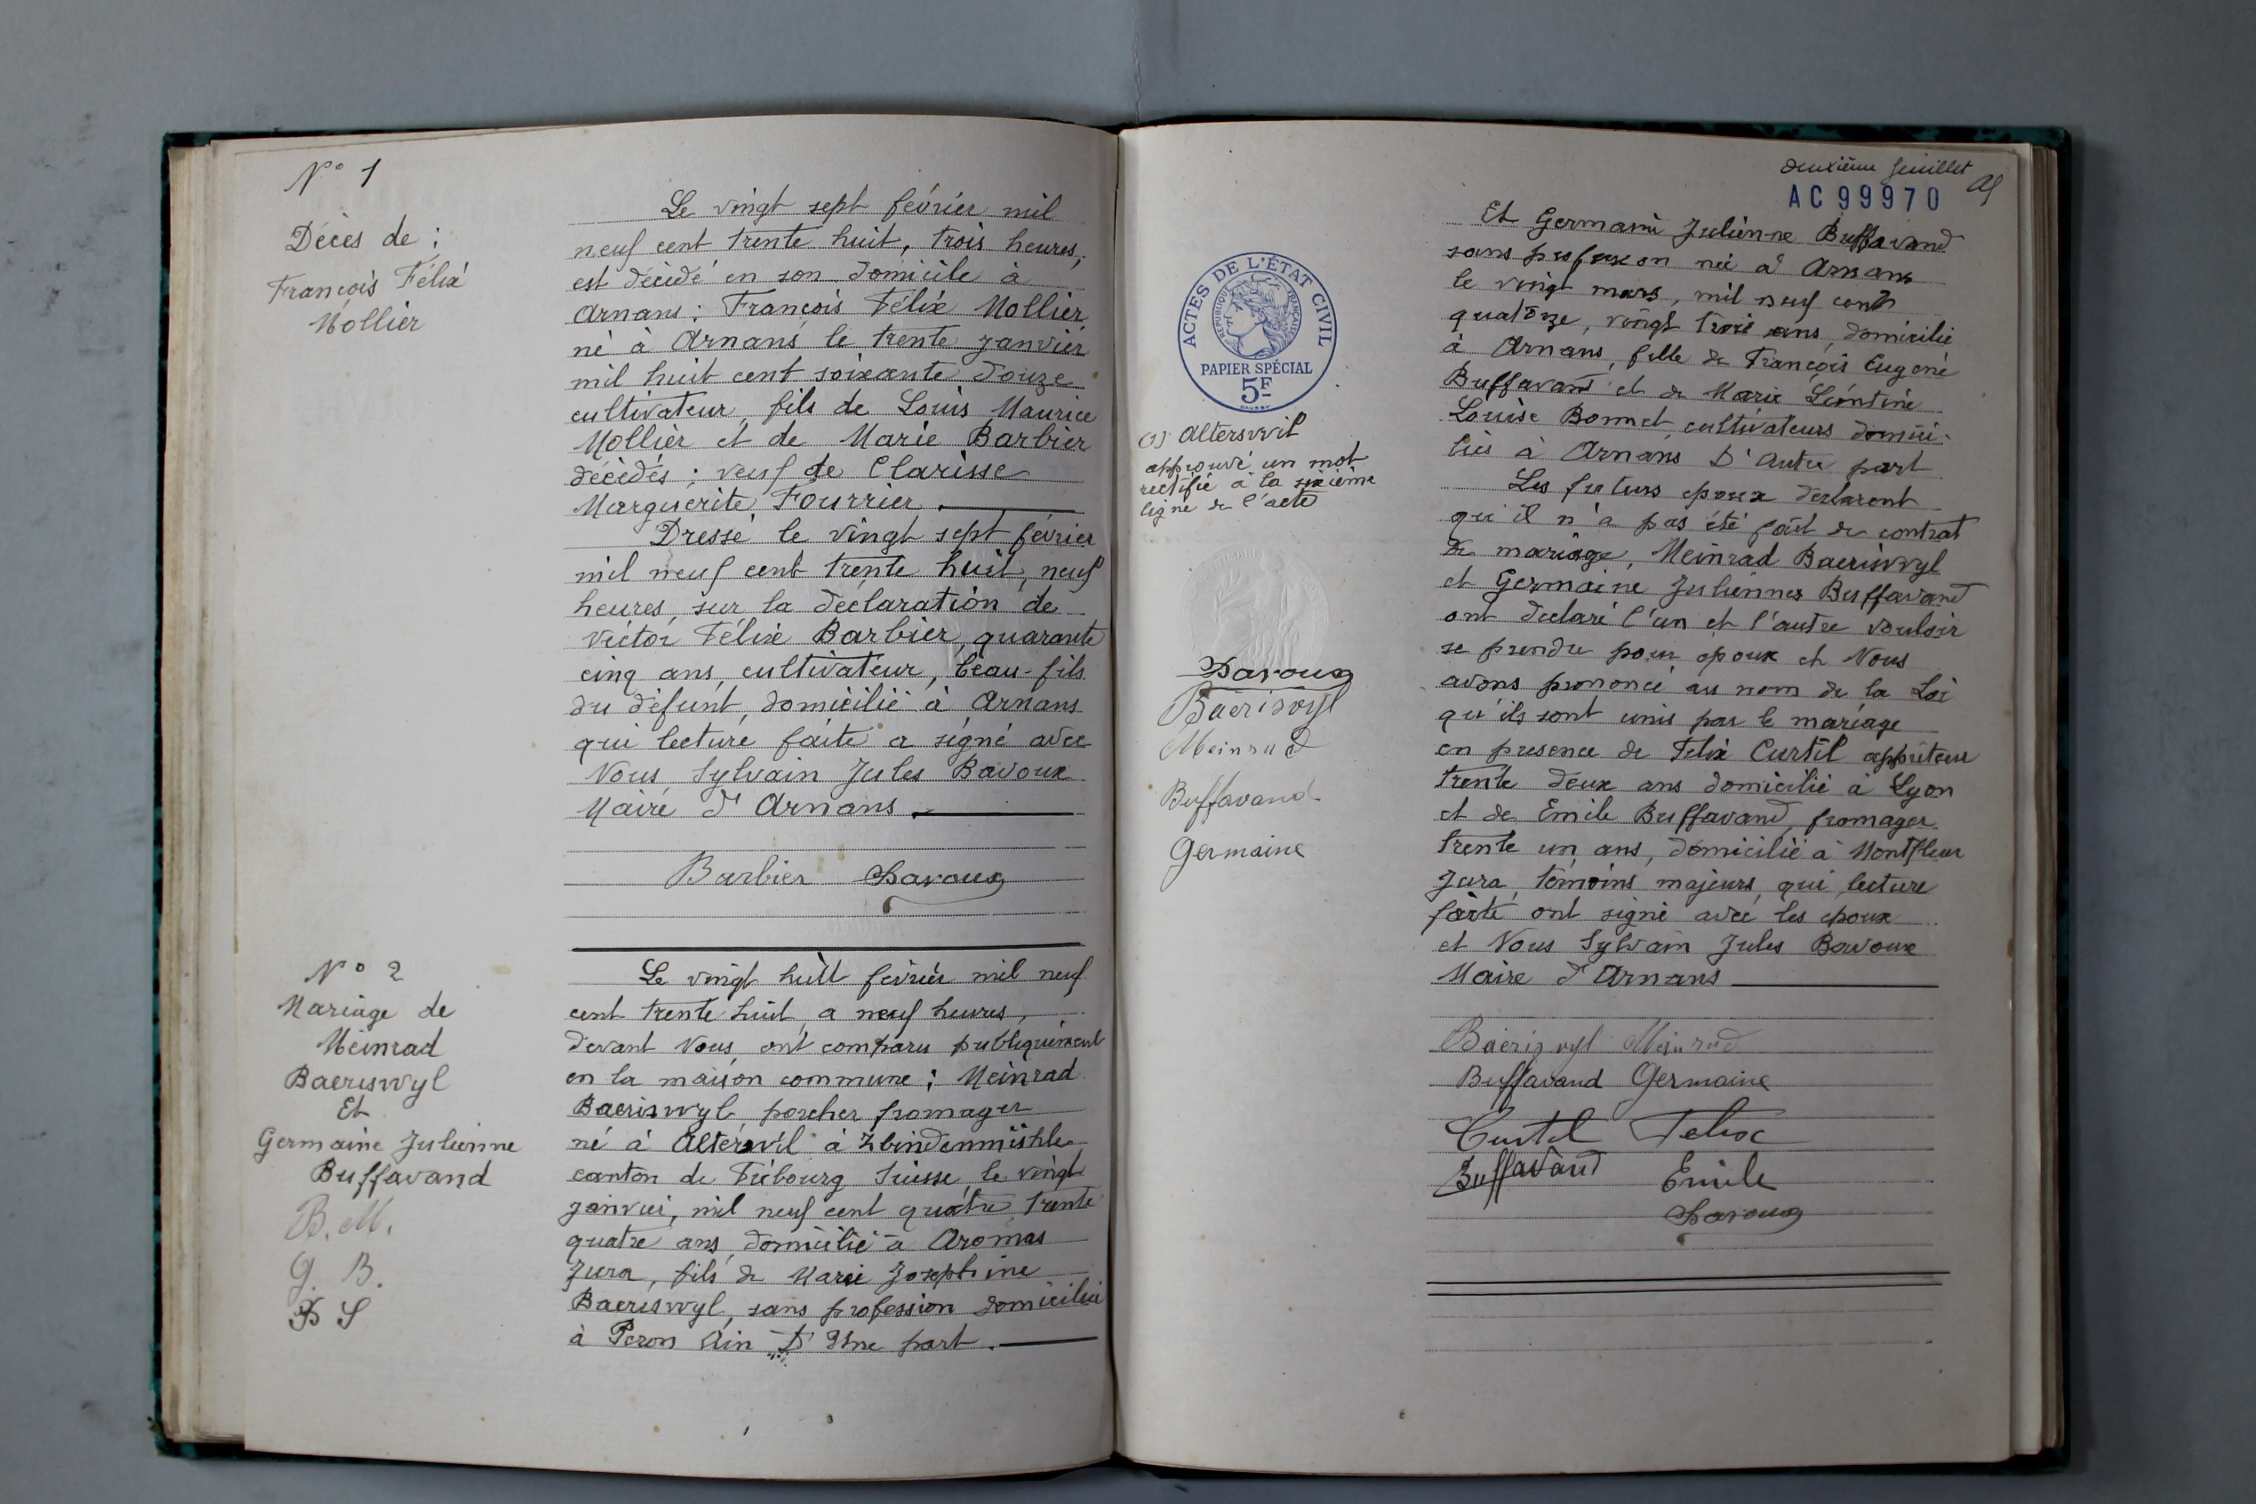 N° 1
Décès de :
François Félix
Mollier
Le vingt sept février mil
neuf cent trente huit, trois heures,
est décédé en son domicile à
Arnans : François Félix Mollier
né à Arnans le trente janvier
mil huit cent soixante douze
cultivateur, fils de Louis Maurice
Mollier et de Marie Barbier
décédés ; veuf de Clarisse
Marguerite Fourrier.
Dressé le vingt sept février
mil neuf cent trente huit, neuf
heures, sur la déclaration de
Victor Félix Barbier, quarante
cinq ans, cultivateur, beau-fils
du défunt, domicilié à Arnans
qui lecture faite a signé avec
Nous Sylvain Jules Bavoux
Maire d'Arnans.
Barbier Bavoux
N° 2
Mariage de
Meinrad
Baeriswyl
Et
Germaine Julienne
Buffavand
B. M.
G. B.
B S
Le vingt huit février mil neuf
cent trente huit, a neuf heures,
devant Nous, ont comparu publiquement
en la maison commune : Meinrad
Baeriswyl, porcher fromager
né à Altervil à Zbindenmühle
canton de Fribourg Suisse, le vingt
janvier, mil neuf cent quatre, trente
quatre ans, domicilié à Aromas
Jura, fils de Marie Josephine
Baeriswyl, sans profession domiciliée
à Peron Ain D'Une part.
deuxième feuillet
AC 99970
ACTES DE L'ÉTAT CIVIL
RÉPUBLIQUE FRANÇAISE
PAPIER SPÉCIAL
5F
(1) Alterswil
approuvé un mot
rectifié à la sixième
ligne de l'acte
Bavoux
Baeriswyl
Meinrad
Buffavand
Germaine
Et Germaine Julienne Buffavand
sans profession née à Arnans
le vingt mars, mil neuf cent
quatorze, vingt trois ans, domicilié
à Arnans, fille de François Eugené
Buffavand et de Marie Léontine
Louise Bonnet, cultivateurs domici-
liés à Arnans D'Autre part
Les futurs époux déclarent
qu'il n'a pas été fait de contrat
de mariage, Meinrad Baeriswyl
et Germaine Juliennes Buffavand
ont declaré l'un et l'autre vouloir
se prendre pour époux et Nous
avons prononcé au nom de la Loi
qu'ils sont unis par le mariage
en presence de Felix Curtil apprêteur
trente deux ans domicilié à Lyon
et de Emile Buffavand, fromager
trente un ans, domicilié à Montfleur
Jura, témoins majeurs, qui lecture
faite ont signé avec les époux
et Nous Sylvain Jules Bavoux
Maire d'Arnans
Baeriswyl Meinrad
Buffavand Germaine
Curtil Felix
Buffavand Emile
Bavoux